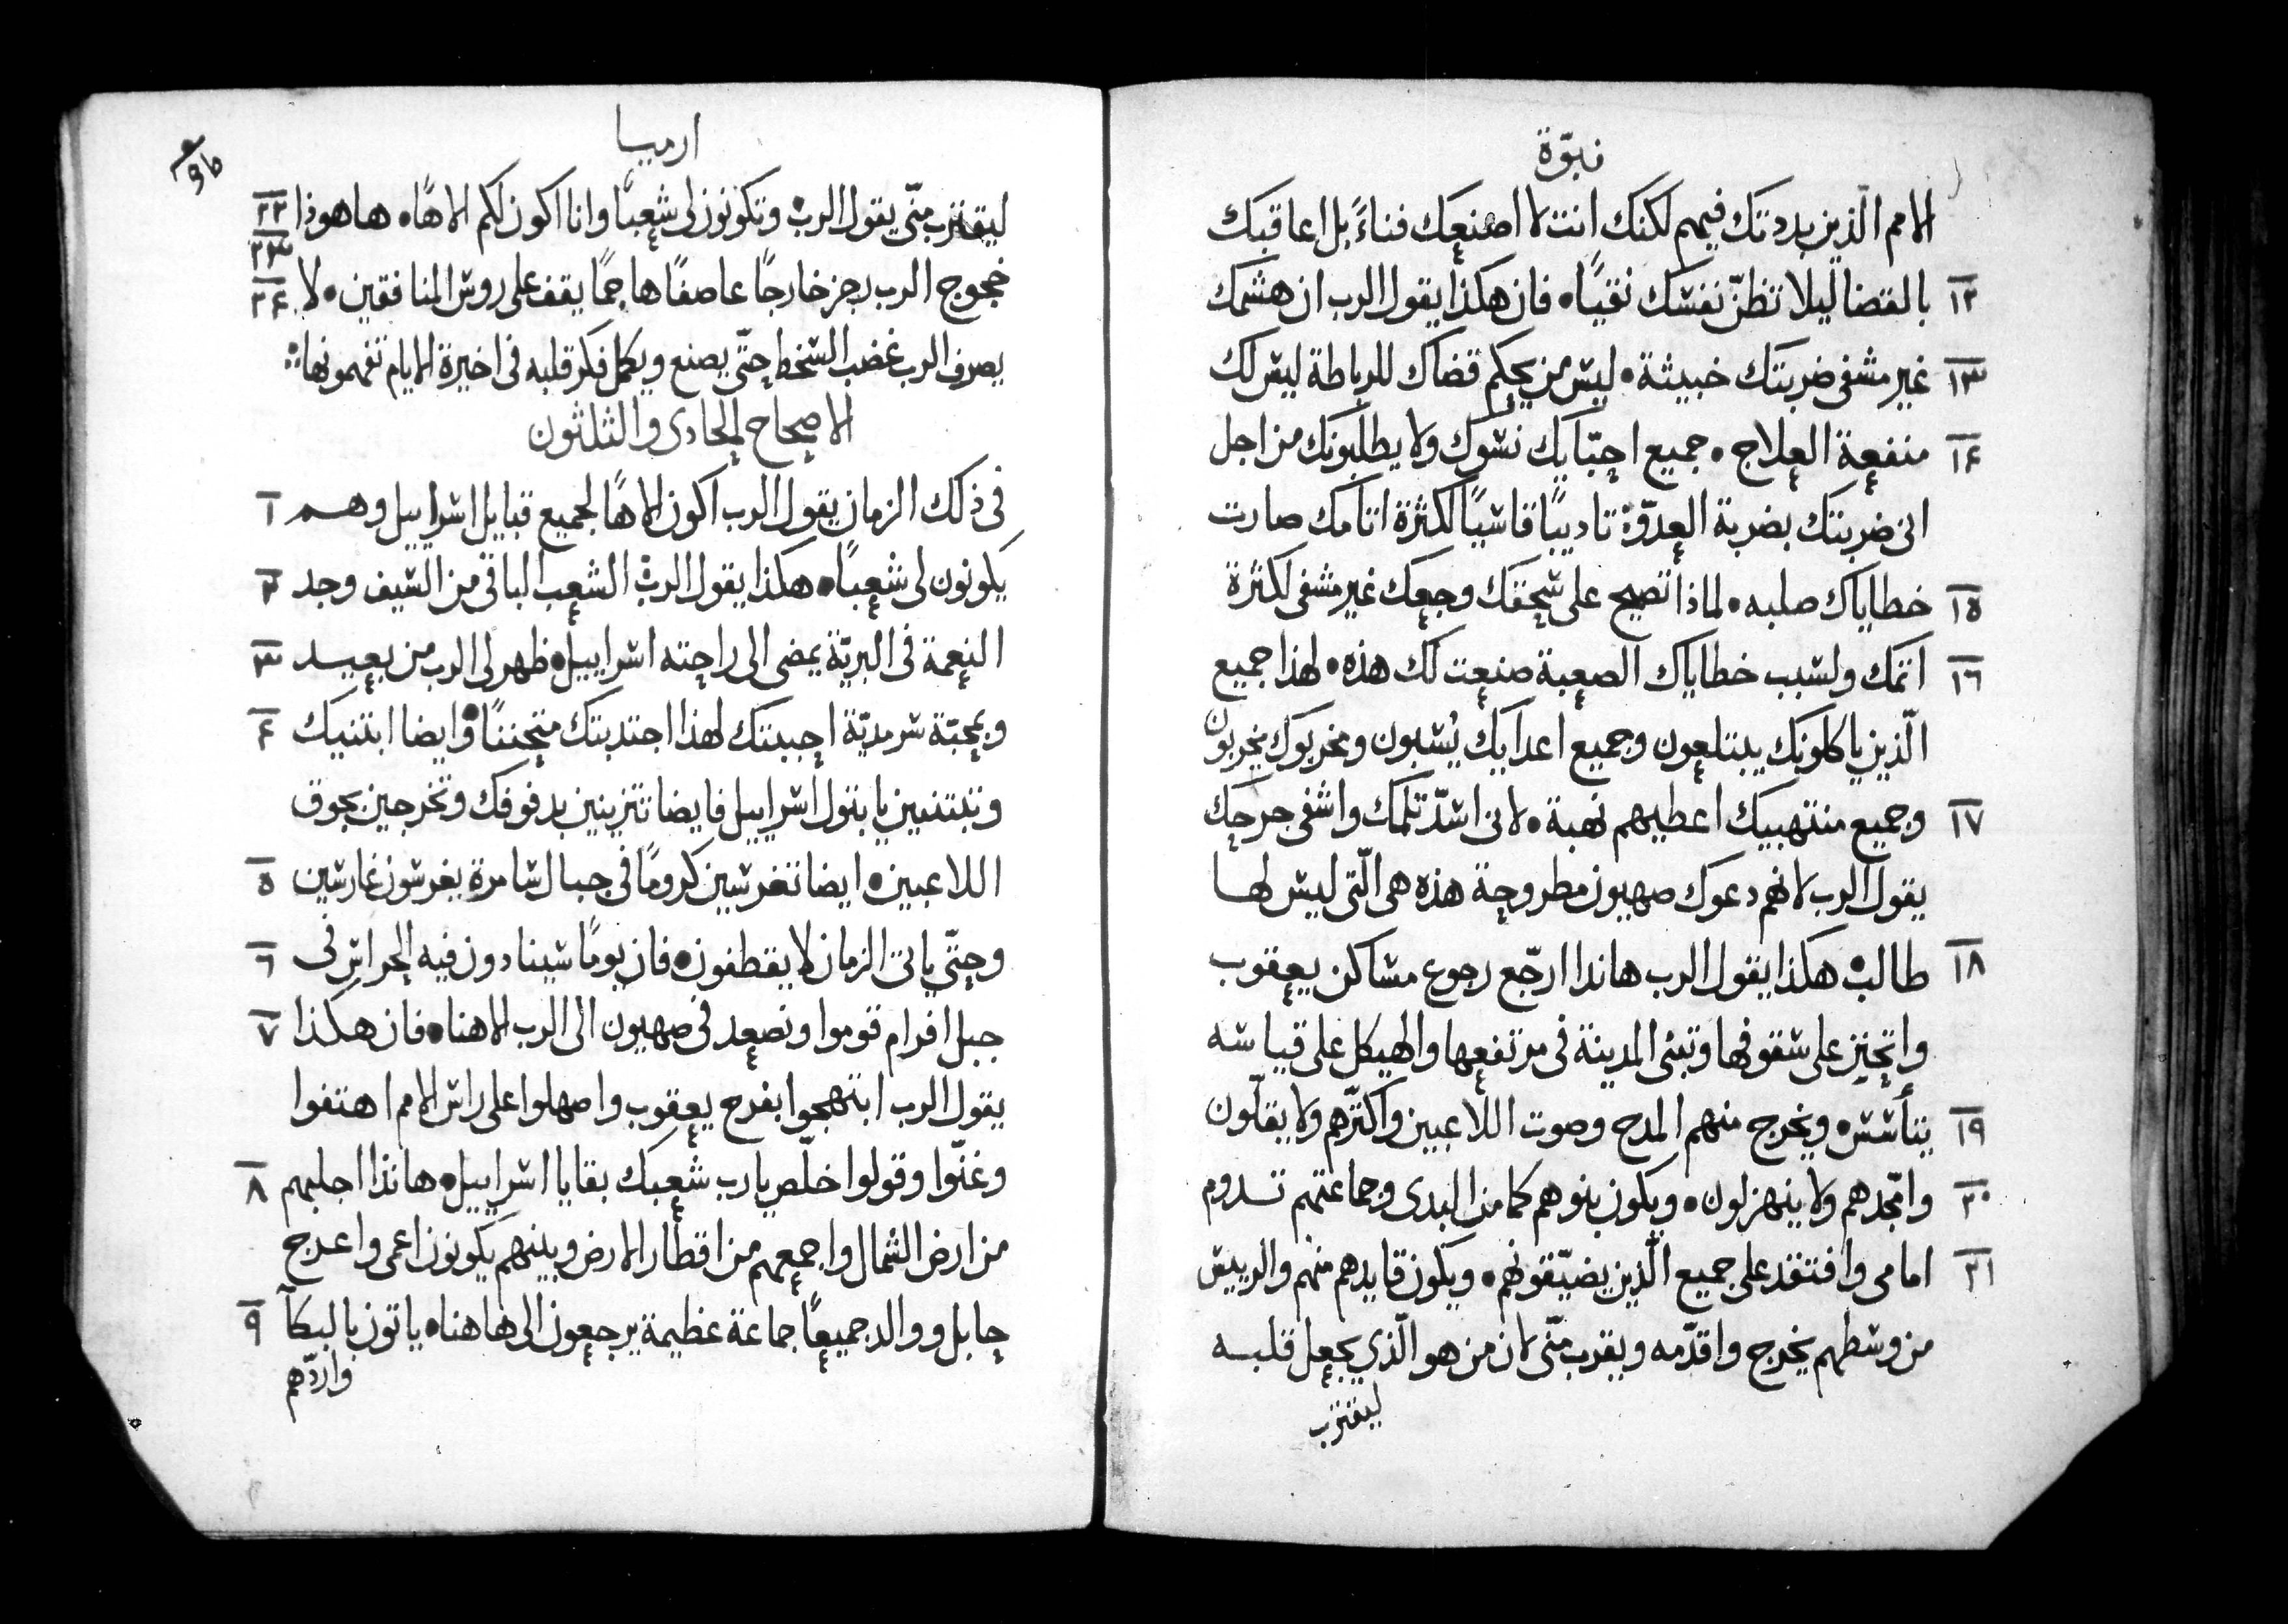 نبوّة
الامم الّذين بددتك فيهم لكنك انت لا اصنعك فناءً بل اعاقبك
١٢ بالقضا ليلا تظنّ نفسك نقيًا • فان هكذا يقول الرب ان هشمك
١٣ غير مشفى ضربتك خبيثة • ليس من يحكم قضاك للرباطة ليس لك
١٤ منفعة العلاج • جميع احبّايك نسوك ولا يطلبونك من اجل
انى ضربتك بضربة العدوّ تاديبًا قاسيًا لكثرة اثامك صارت
١٥ خطاياك صلبه • لماذا تصيح على سحقك وجعك غير مشفى لكثرة
١٦ اثمك ولسبب خطاياك الصعبة صنعت لك هذه • لهذا جميع
الّذين ياكلونك يبتلعون وجميع اعدايك يُسبون ومخربوك يخربون
١٧ وجميع منتهبيك اعطيهم نهبة • لانى اسدّ ثلمك واشفى جرحك
يقول الرب لانهم دعوك صهيون مطروحة هذه هى الّتى ليس لها
١٨ طالب • هكذا يقول الرب هانذا ارجّع رجوع مساكن يعقوب
واتحنن على سقوفها وتبنى المدينة فى مرتفعها والهيكل على قياسه
١٩ يتأسس • ويخرج منهم المدح وصوت اللاعبين واكثّرهم ولا يقلّون
٢٠ وامجّدهم ولا ينهزلون • ويكون بنوهم كما من البدى وجماعتهم تدوم
٢١ امامى وافتقد على جميع الّذين يضيّقونهم • ويكون قايدهم منهم والرييس
من وسطهم يخرج واقدّمه ويقرب منّى لان من هو الّذي يجعل قلبه
ليقترب
ارميا
٢٢ ليقترب منّى يقول الرب • وتكونون لى شعبًا وانا اكون لكم الاهًا • هاهوذا
٢٣
٢٤ خجوج الرب رجز خارجًا عاصفًا هاجمًا يقف على روس المنافقين • لا
يصرف الرب غضب السخط حتّى يصنع ويكمل فكر قلبه فى اخيرة الايام تفهمونها
الاصحاح الحادى والثلثون
١ فى ذلك الزمان يقول الرب اكون الاهًا لجميع قبايل اسراييل وهم
٢ يكونون لى شعبًا • هكذا يقول الرب الشعب الباقى من السيف وجد
٣ النعمة فى البريّة يمضى الى راحته اسراييل • ظهر لى الرب من بعيد
٤ وبمحبّة سرمديّة احببتك لهذا اجتذبتك متحننًا • وايضا ابتنيك
وتبتنين يا بتول اسراييل فايضا تتزينين بدفوفك وتخرجين بجوق
٥ اللاعبين • ايضا تغرسين كرومًا فى جبال سامرة يغرسون غارسين
٦ وحتّى ياتى الزمان لا يقطفون • فان يومًا سينادون فيه الحراس فى
٧ جبل افرام قوموا ونصعد فى صهيون الى الرب الاهنا • فان هكذا
يقول الرب ابتهجوا بفرح يعقوب واصهلوا على راس الامم اهتفوا
٨ وغنّوا وقولوا خلّص يا رب شعبك بقايا اسراييل • هانذا اجلبهم
من ارض الشمال واجمعهم من اقطار الارض وبينهم يكونون اعمى واعرج
٩ حابل ووالد جميعًا جماعة عظيمة يرجعون الى هاهنا • ياتون بالبكآ
واردّهم